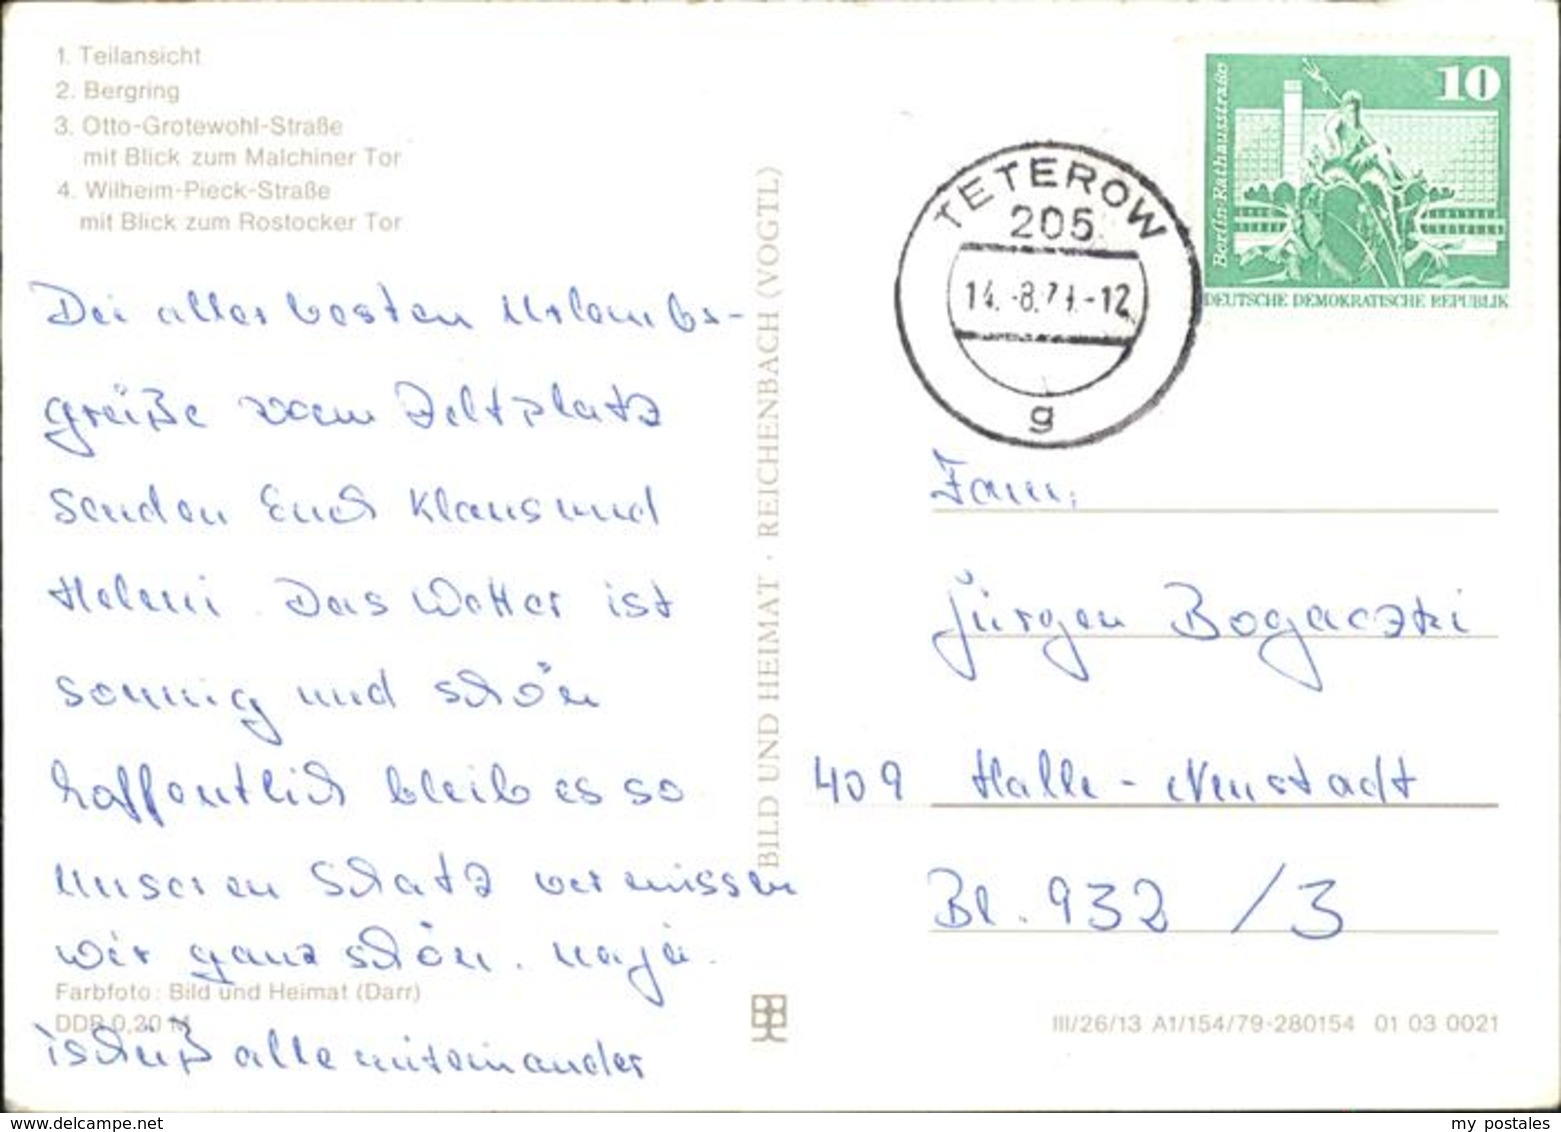 1. Teilansicht
2. Bergring
3. Otto-Grotewohl-Straße
mit Blick zum Malchiner Tor
4. Wilhelm-Pieck-Straße
mit Blick zum Rostocker Tor
Die aller besten Urlaubs-
grüße vom Zeltplatz
senden Euch Klaus und
Heleni. Das Wetter ist
sonnig und schön
hoffentlich bleib es so
unseren Schatz vermissen
wir ganz schön. naja.
Farbfoto: Bild und Heimat (Darr)
DDR 0,20 M
tschüß alle miteinander
BILD UND HEIMAT · REICHENBACH (VOGTL)
TETEROW
205
14.-8.71.-12
g
10
Berlin-Rathausstraße
DEUTSCHE DEMOKRATISCHE REPUBLIK
Fam.
Jürgen Bogaczki
409 Halle-Neustadt
Bl. 932 /3
III/26/13 A1/154/79-280154 01 03 0021
www.delcampe.net
my_postales